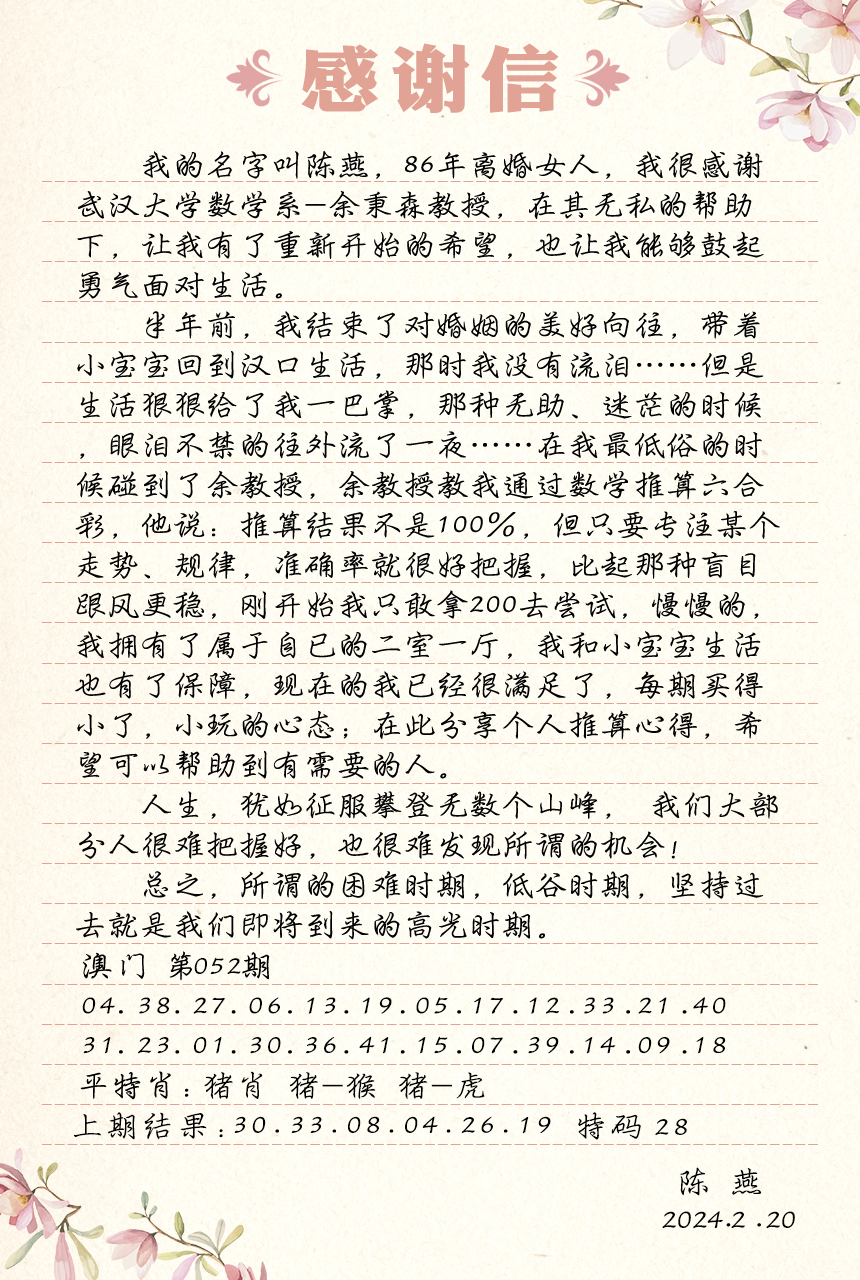 感谢信
我的名字叫陈燕，86年离婚女人，我很感谢
武汉大学数学系—余秉森教授，在其无私的帮助
下，让我有了重新开始的希望，也让我能够鼓起
勇气面对生活。
半年前，我结束了对婚姻的美好向往，带着
小宝宝回到汉口生活，那时我没有流泪……但是
生活狠狠给了我一巴掌，那种无助、迷茫的时候
，眼泪不禁的往外流了一夜……在我最低俗的时
候碰到了余教授，余教授教我通过数学推算六合
彩，他说：推算结果不是100%，但只要专注某个
走势、规律，准确率就很好把握，比起那种盲目
跟风更稳，刚开始我只敢拿200去尝试，慢慢的，
我拥有了属于自已的二室一厅，我和小宝宝生活
也有了保障，现在的我已经很满足了，每期买得
小了，小玩的心态；在此分享个人推算心得，希
望可以帮助到有需要的人。
人生，犹如征服攀登无数个山峰， 我们大部
分人很难把握好，也很难发现所谓的机会！
总之，所谓的困难时期，低谷时期，坚持过
去就是我们即将到来的高光时期。
澳门 第052期
04.38.27.06.13.19.05.17.12.33.21.40
31.23.01.30.36.41.15.07.39.14.09.18
平特肖：猪肖 猪—猴 猪—虎
上期结果：30.33.08.04.26.19 特码 28
陈 燕
2024.2.20